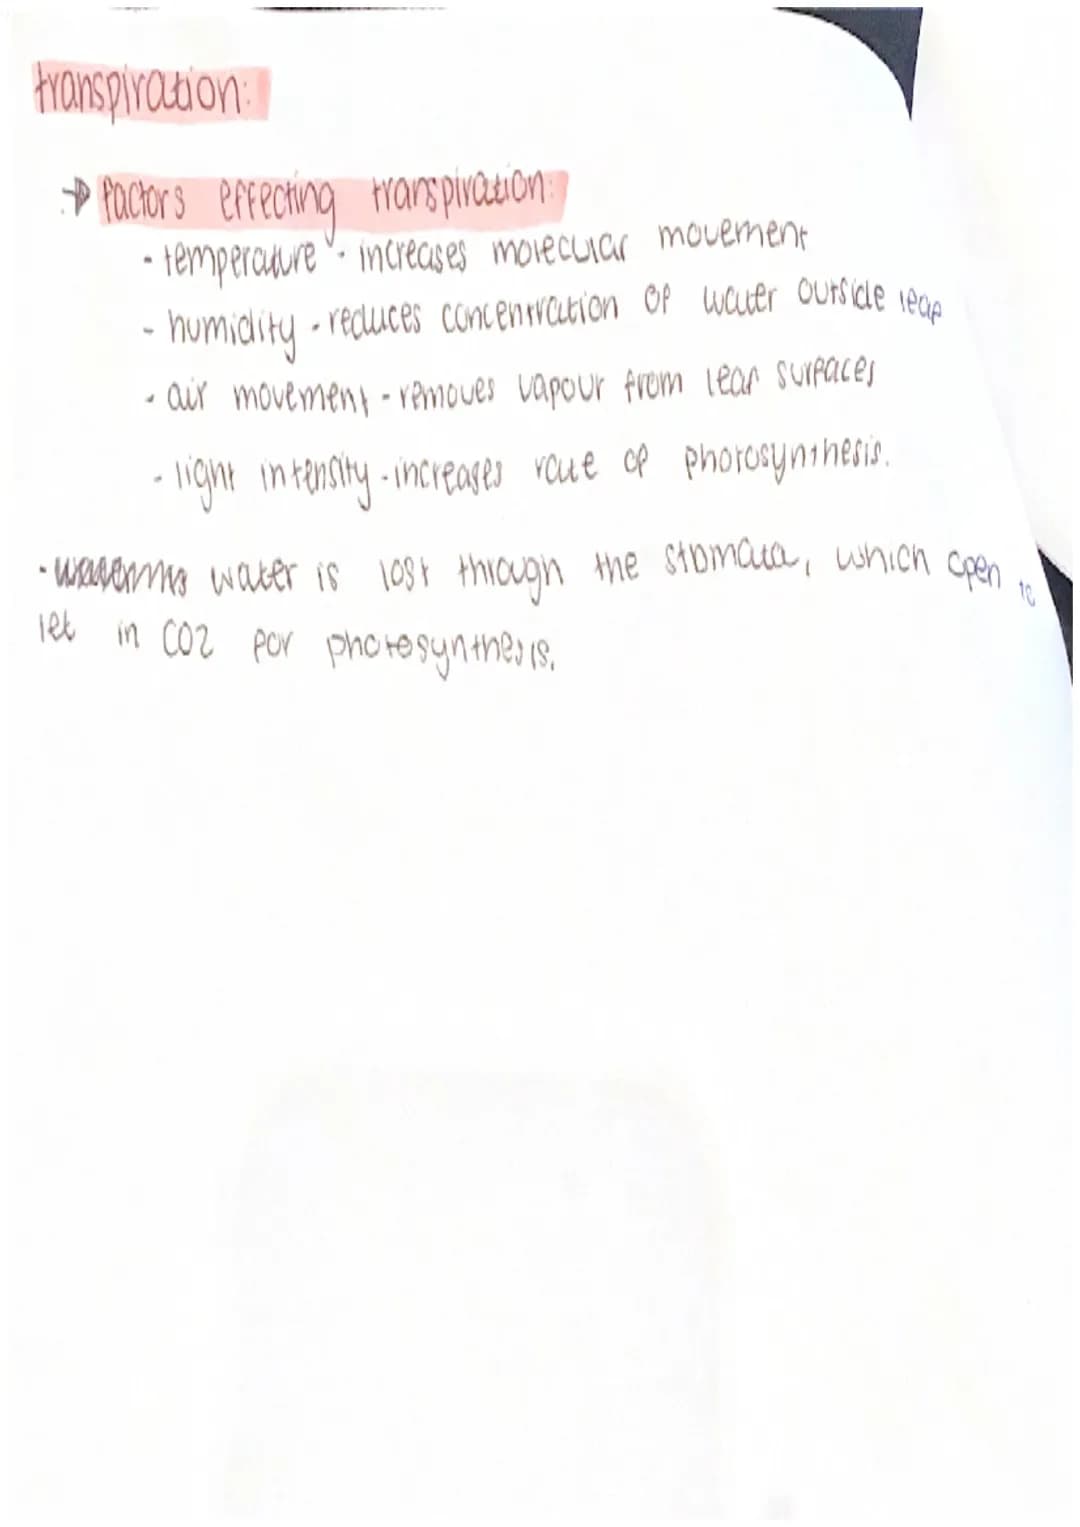 transpiration:
→ factors effecting transpiration:
- temperature - increases molecular movement
- humidity - reduces concentration of water outside leaf
- air movement - removes vapour from leaf surfaces
- light intensity - increases rate of photosynthesis.
- water is lost through the stomata, which open to
let in CO2 for photosynthesis.